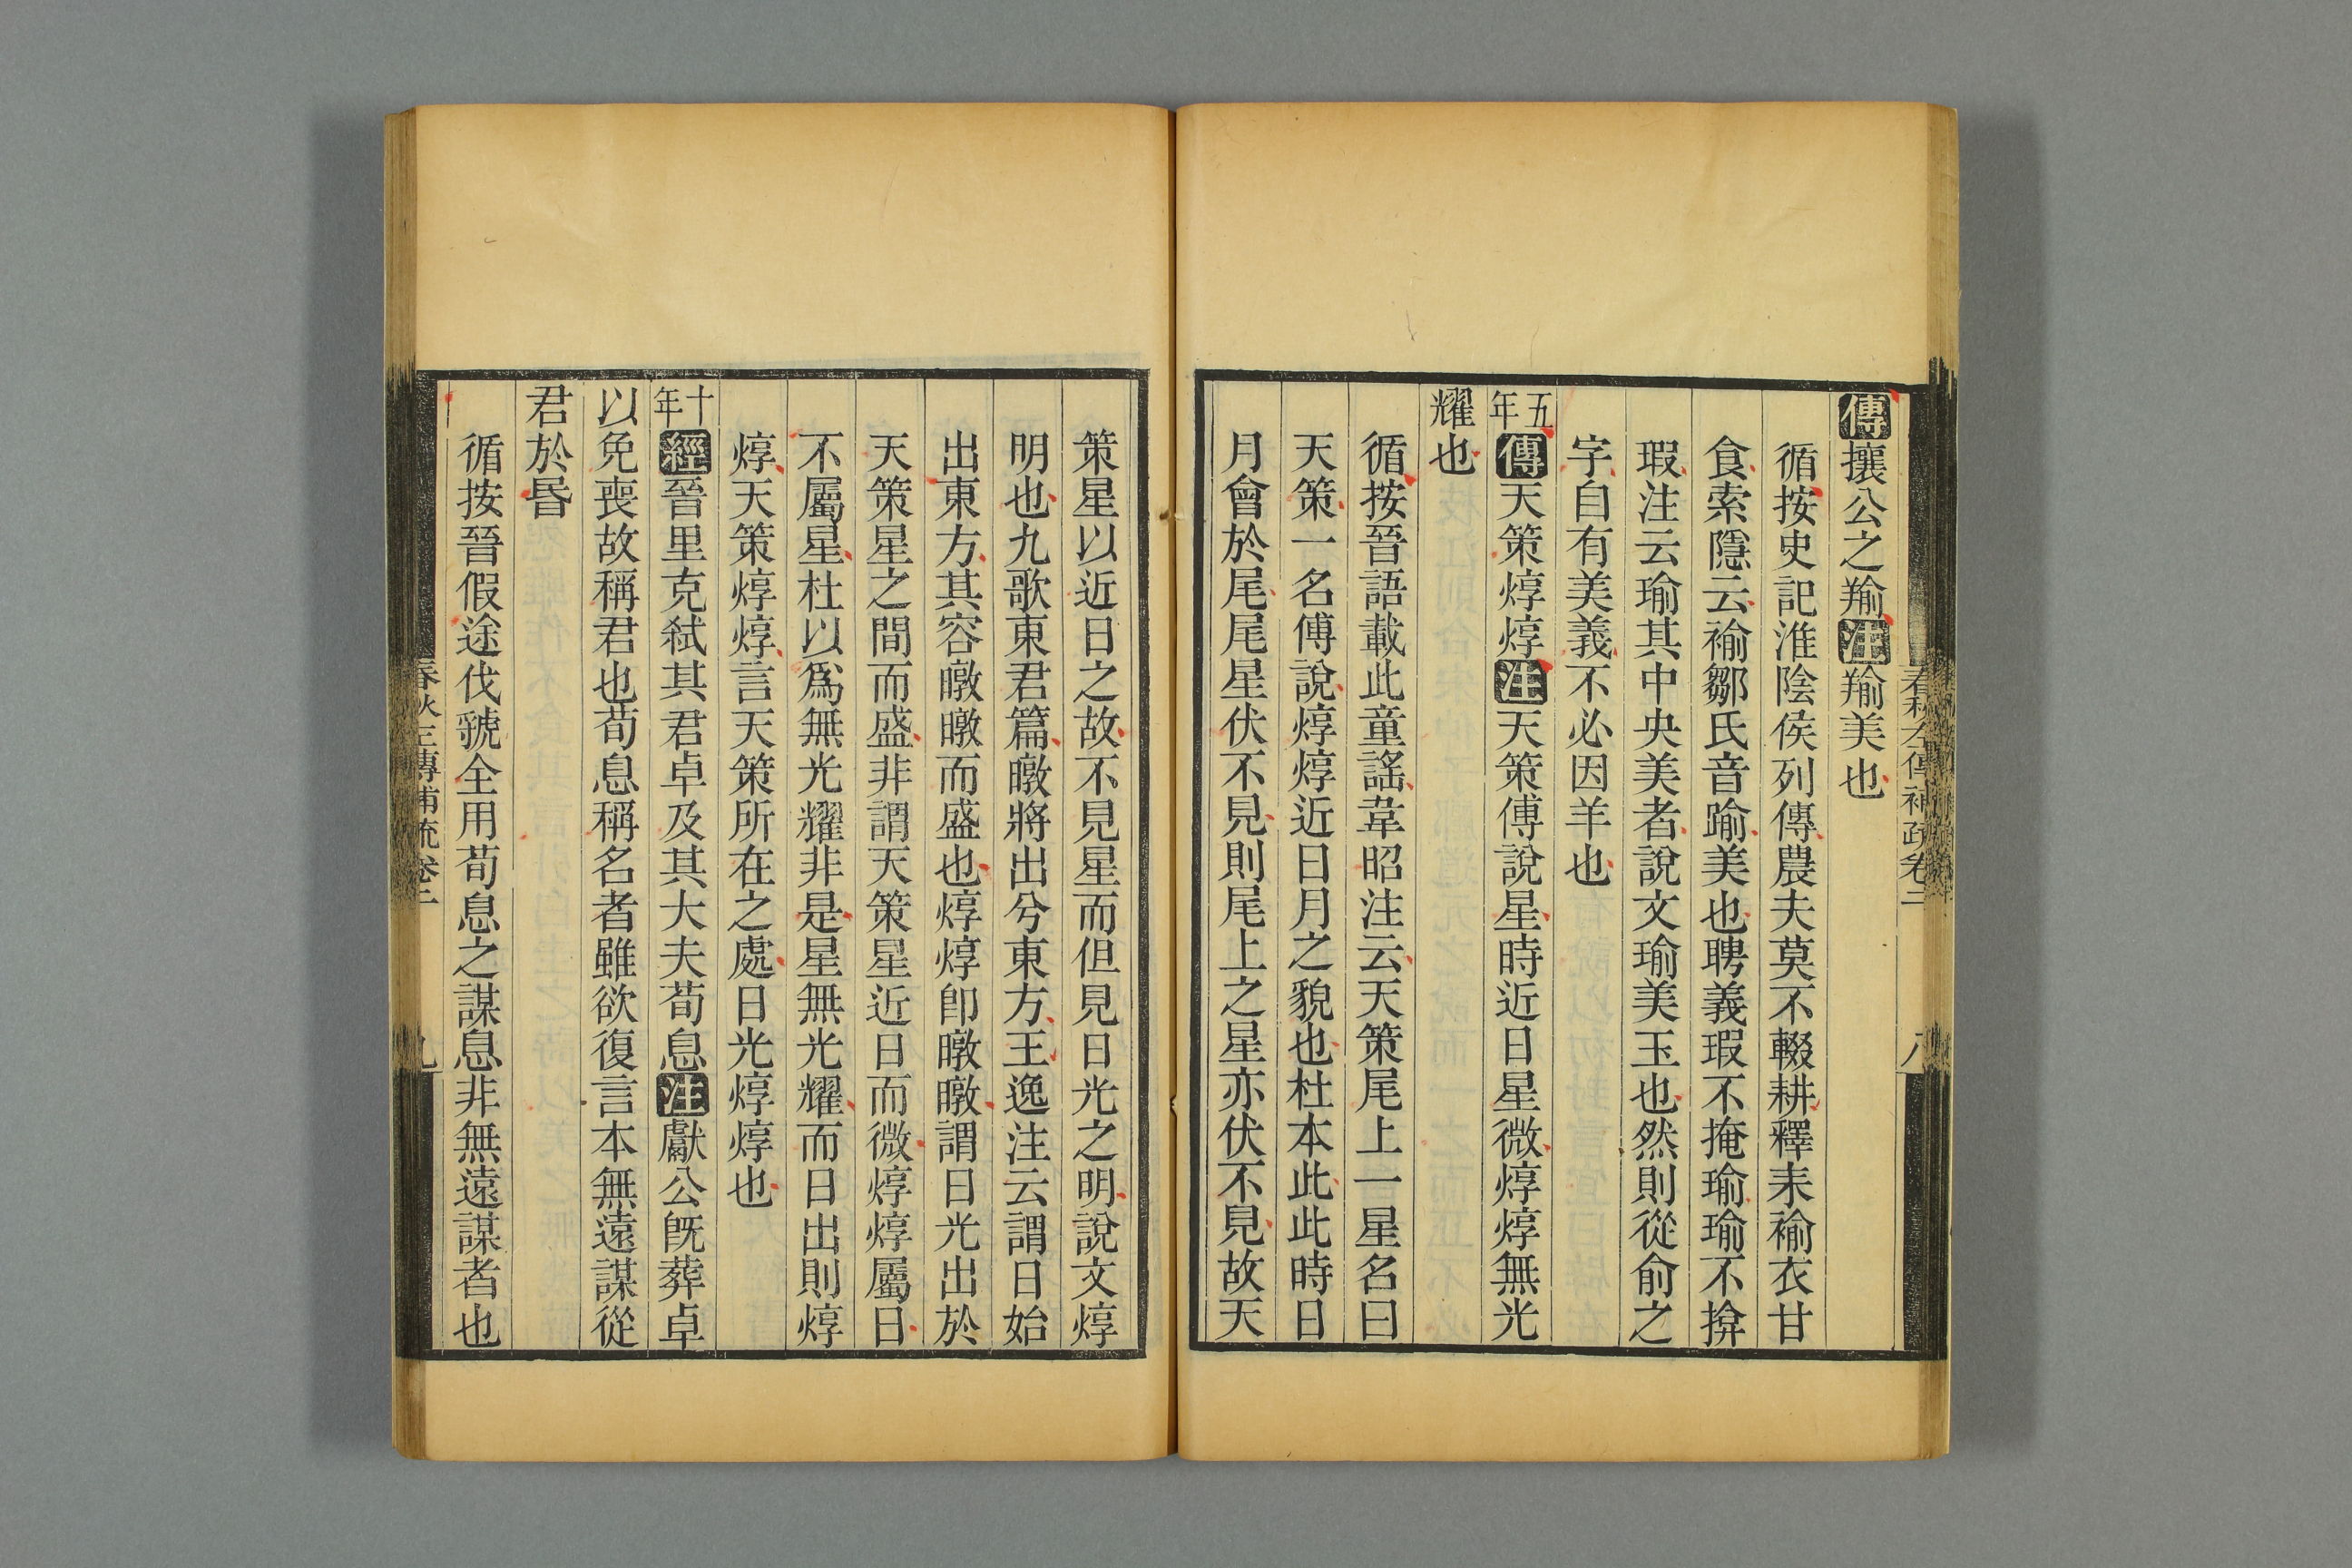 春秋左傳補疏卷二
八
傳攘公之羭注羭美也
循按史記淮陰侯列傳農夫莫不輟耕釋耒褕衣甘
食索隱云褕鄒氏音踰美也聘義瑕不掩瑜瑜不揜
瑕注云瑜其中央美者說文瑜美玉也然則從俞之
字自有美義不必因羊也
五年傳天策焞焞注天策傅說星時近日星微焞焞無光
耀也
循按晉語載此童謠韋昭注云天策尾上一星名曰
天策一名傅說焞焞近日月之貌也杜本此此時日
月會於尾尾星伏不見則尾上之星亦伏不見故天
策星以近日之故不見星而但見日光之明說文焞
明也九歌東君篇暾將出兮東方王逸注云謂日始
出東方其容暾暾而盛也焞焞卽暾暾謂日光出於
天策星之間而盛非謂天策星近日而微焞焞屬日
不屬星杜以爲無光耀非是星無光耀而日出則焞
焞天策焞焞言天策所在之處日光焞焞也
十年經晉里克弑其君卓及其大夫荀息注獻公旣葬卓
以免喪故稱君也荀息稱名者雖欲復言本無遠謀從
君於昬
循按晉假途伐虢全用荀息之謀息非無遠謀者也
春秋三傳補疏卷二
九